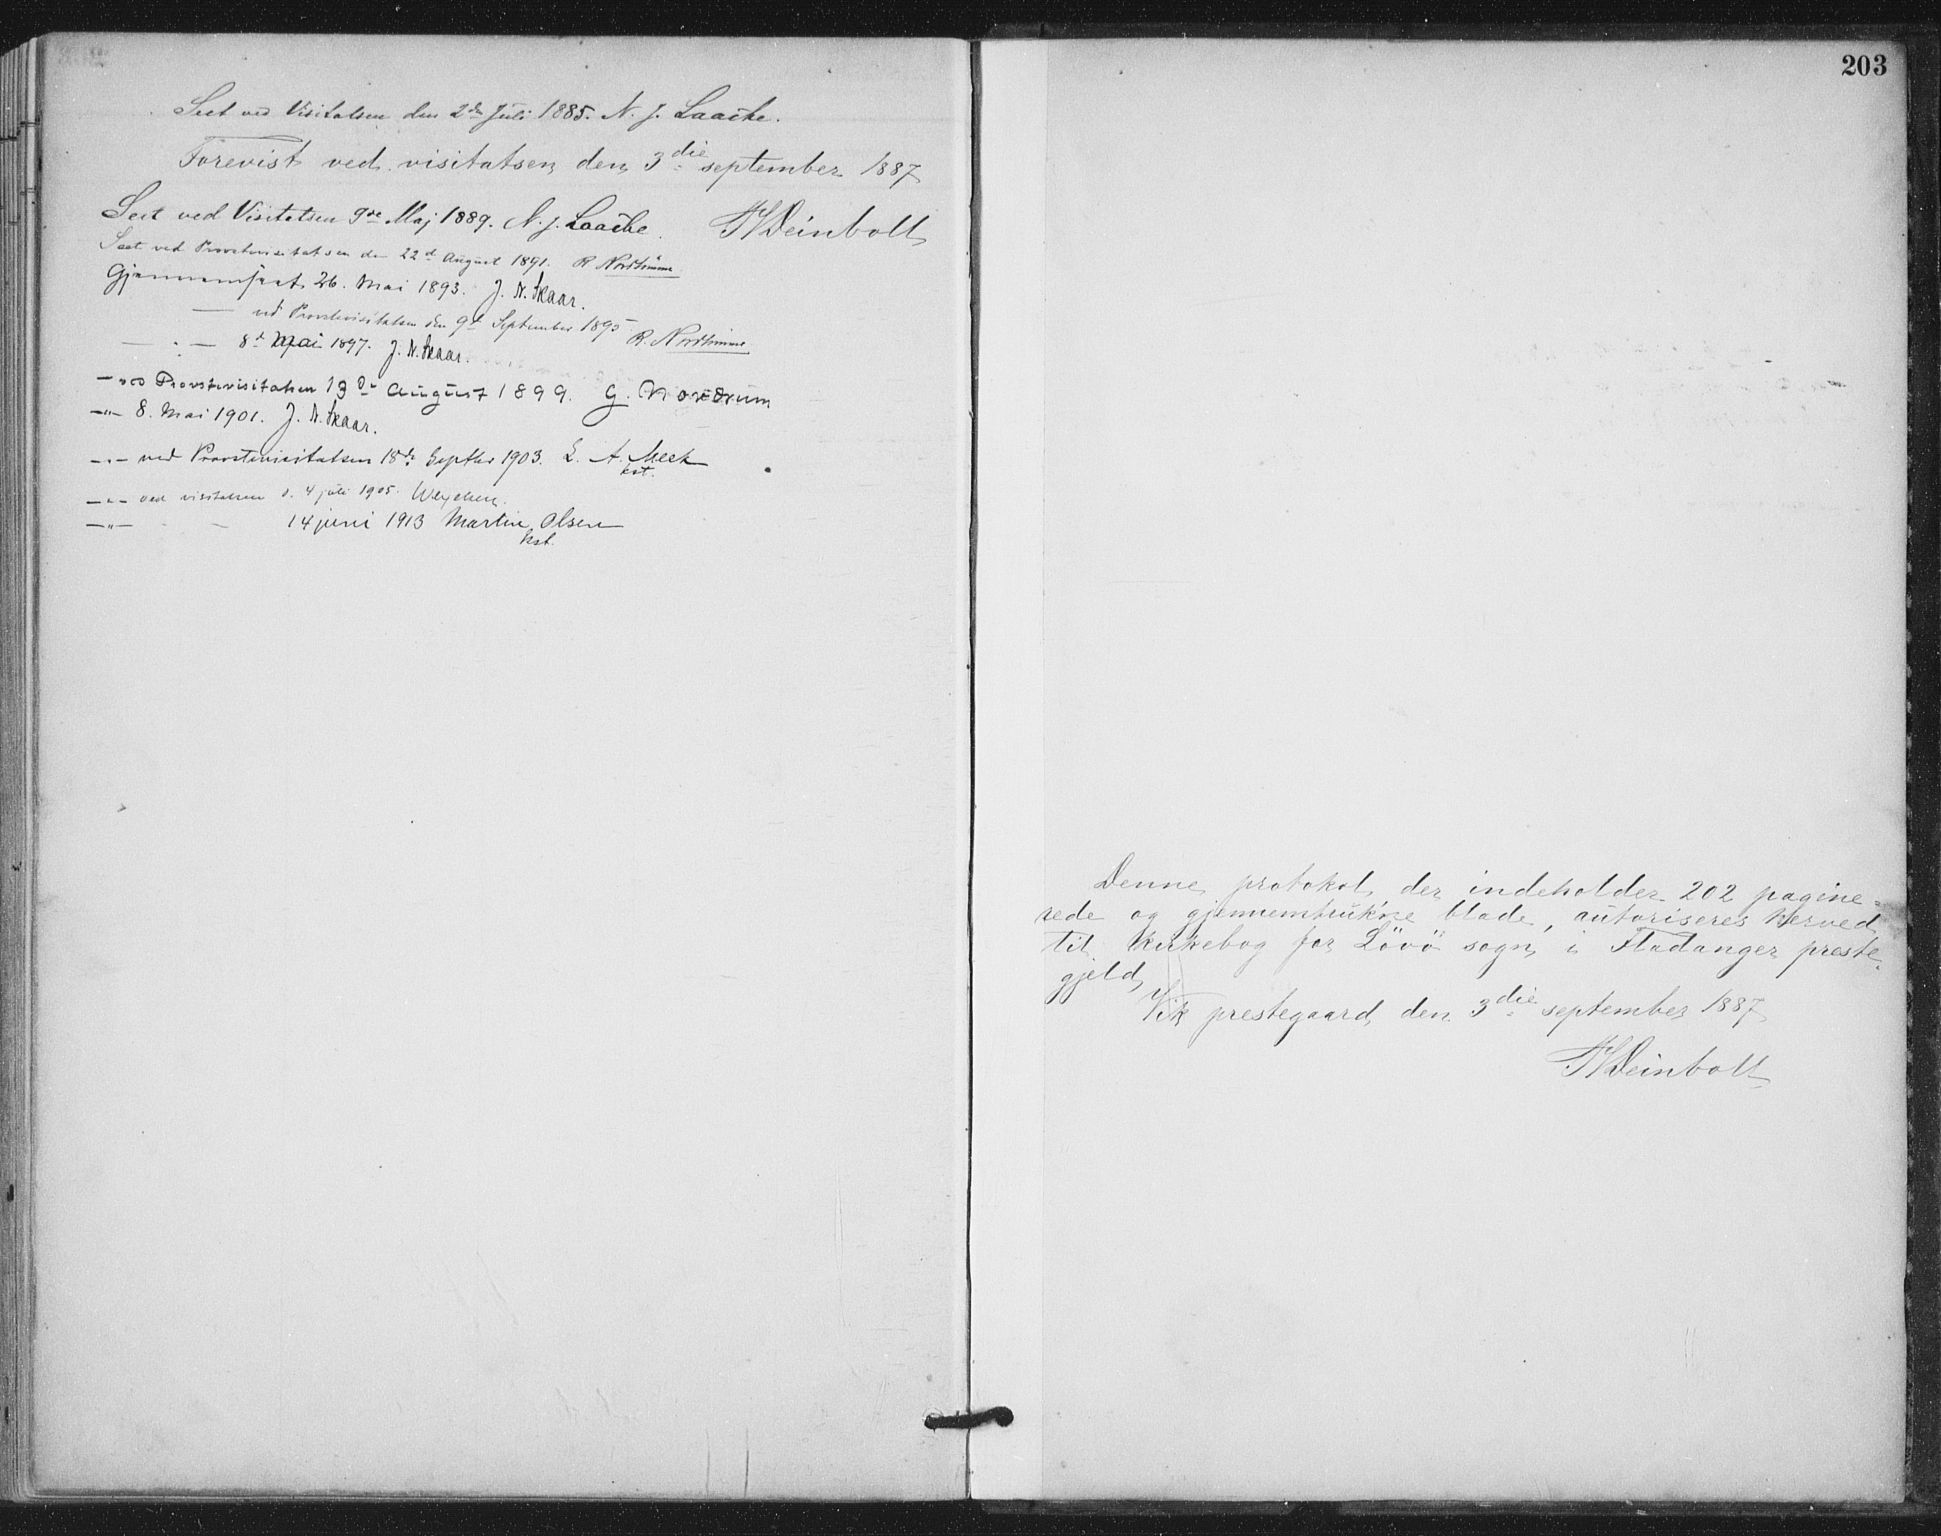 Seet ved Visitatsen den 2den Juli 1885. N. J. Laache.
Forevist ved visitatsen den 3die september 1887
Seet ved Visitatsen 9de Maj 1889. N. J. Laache. Deinboll
Seet ved Provstevisitatsen den 22d August 1891. R
Gjennemseet 26. Mai 1893. J. N. Skaar.
— ved Provstevisitatsen den 9d September 1895 R.
— " — 8d Mai 1897. J. N. Skaar.
— ved Provstevisitatsen 13de August 1899. G. Nordrum
—"— 8. Mai 1901. J. N. Skaar.
—"— ved Provstevisitatsen 18de Septbr 1903. L. A. Meek
kst.
—"— ved visitatsen d. 4 juli 1905.
—"— - — 14 juni 1913 Martin Olsen
kst.
203
Denne protokol, der indeholder 202 pagine=
rede og gjennemtrukne blade, autoriseres herved
til kirkebog for Lövö sogn i Fladanger preste-
gjeld.
Vik prestegaard, den 3die september 1887
Deinboll